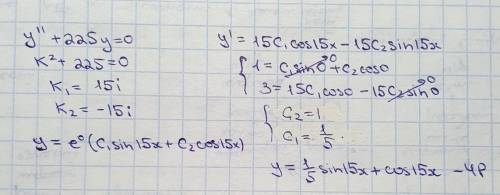 y'' + 225y = 0
k² + 225 = 0
k₁ = 15i
k₂ = -15i
y = e⁰(C₁ sin15x + C₂ cos15x)
y' = 15C₁ cos15x - 15C₂ sin15x
{ 1 = C₁ sin0 →0 + C₂ cos0
3 = 15C₁ cos0 - 15C₂ sin0 →0
{ C₂ = 1
C₁ = 1/5 .
y = 1/5 sin15x + cos15x - ЧР